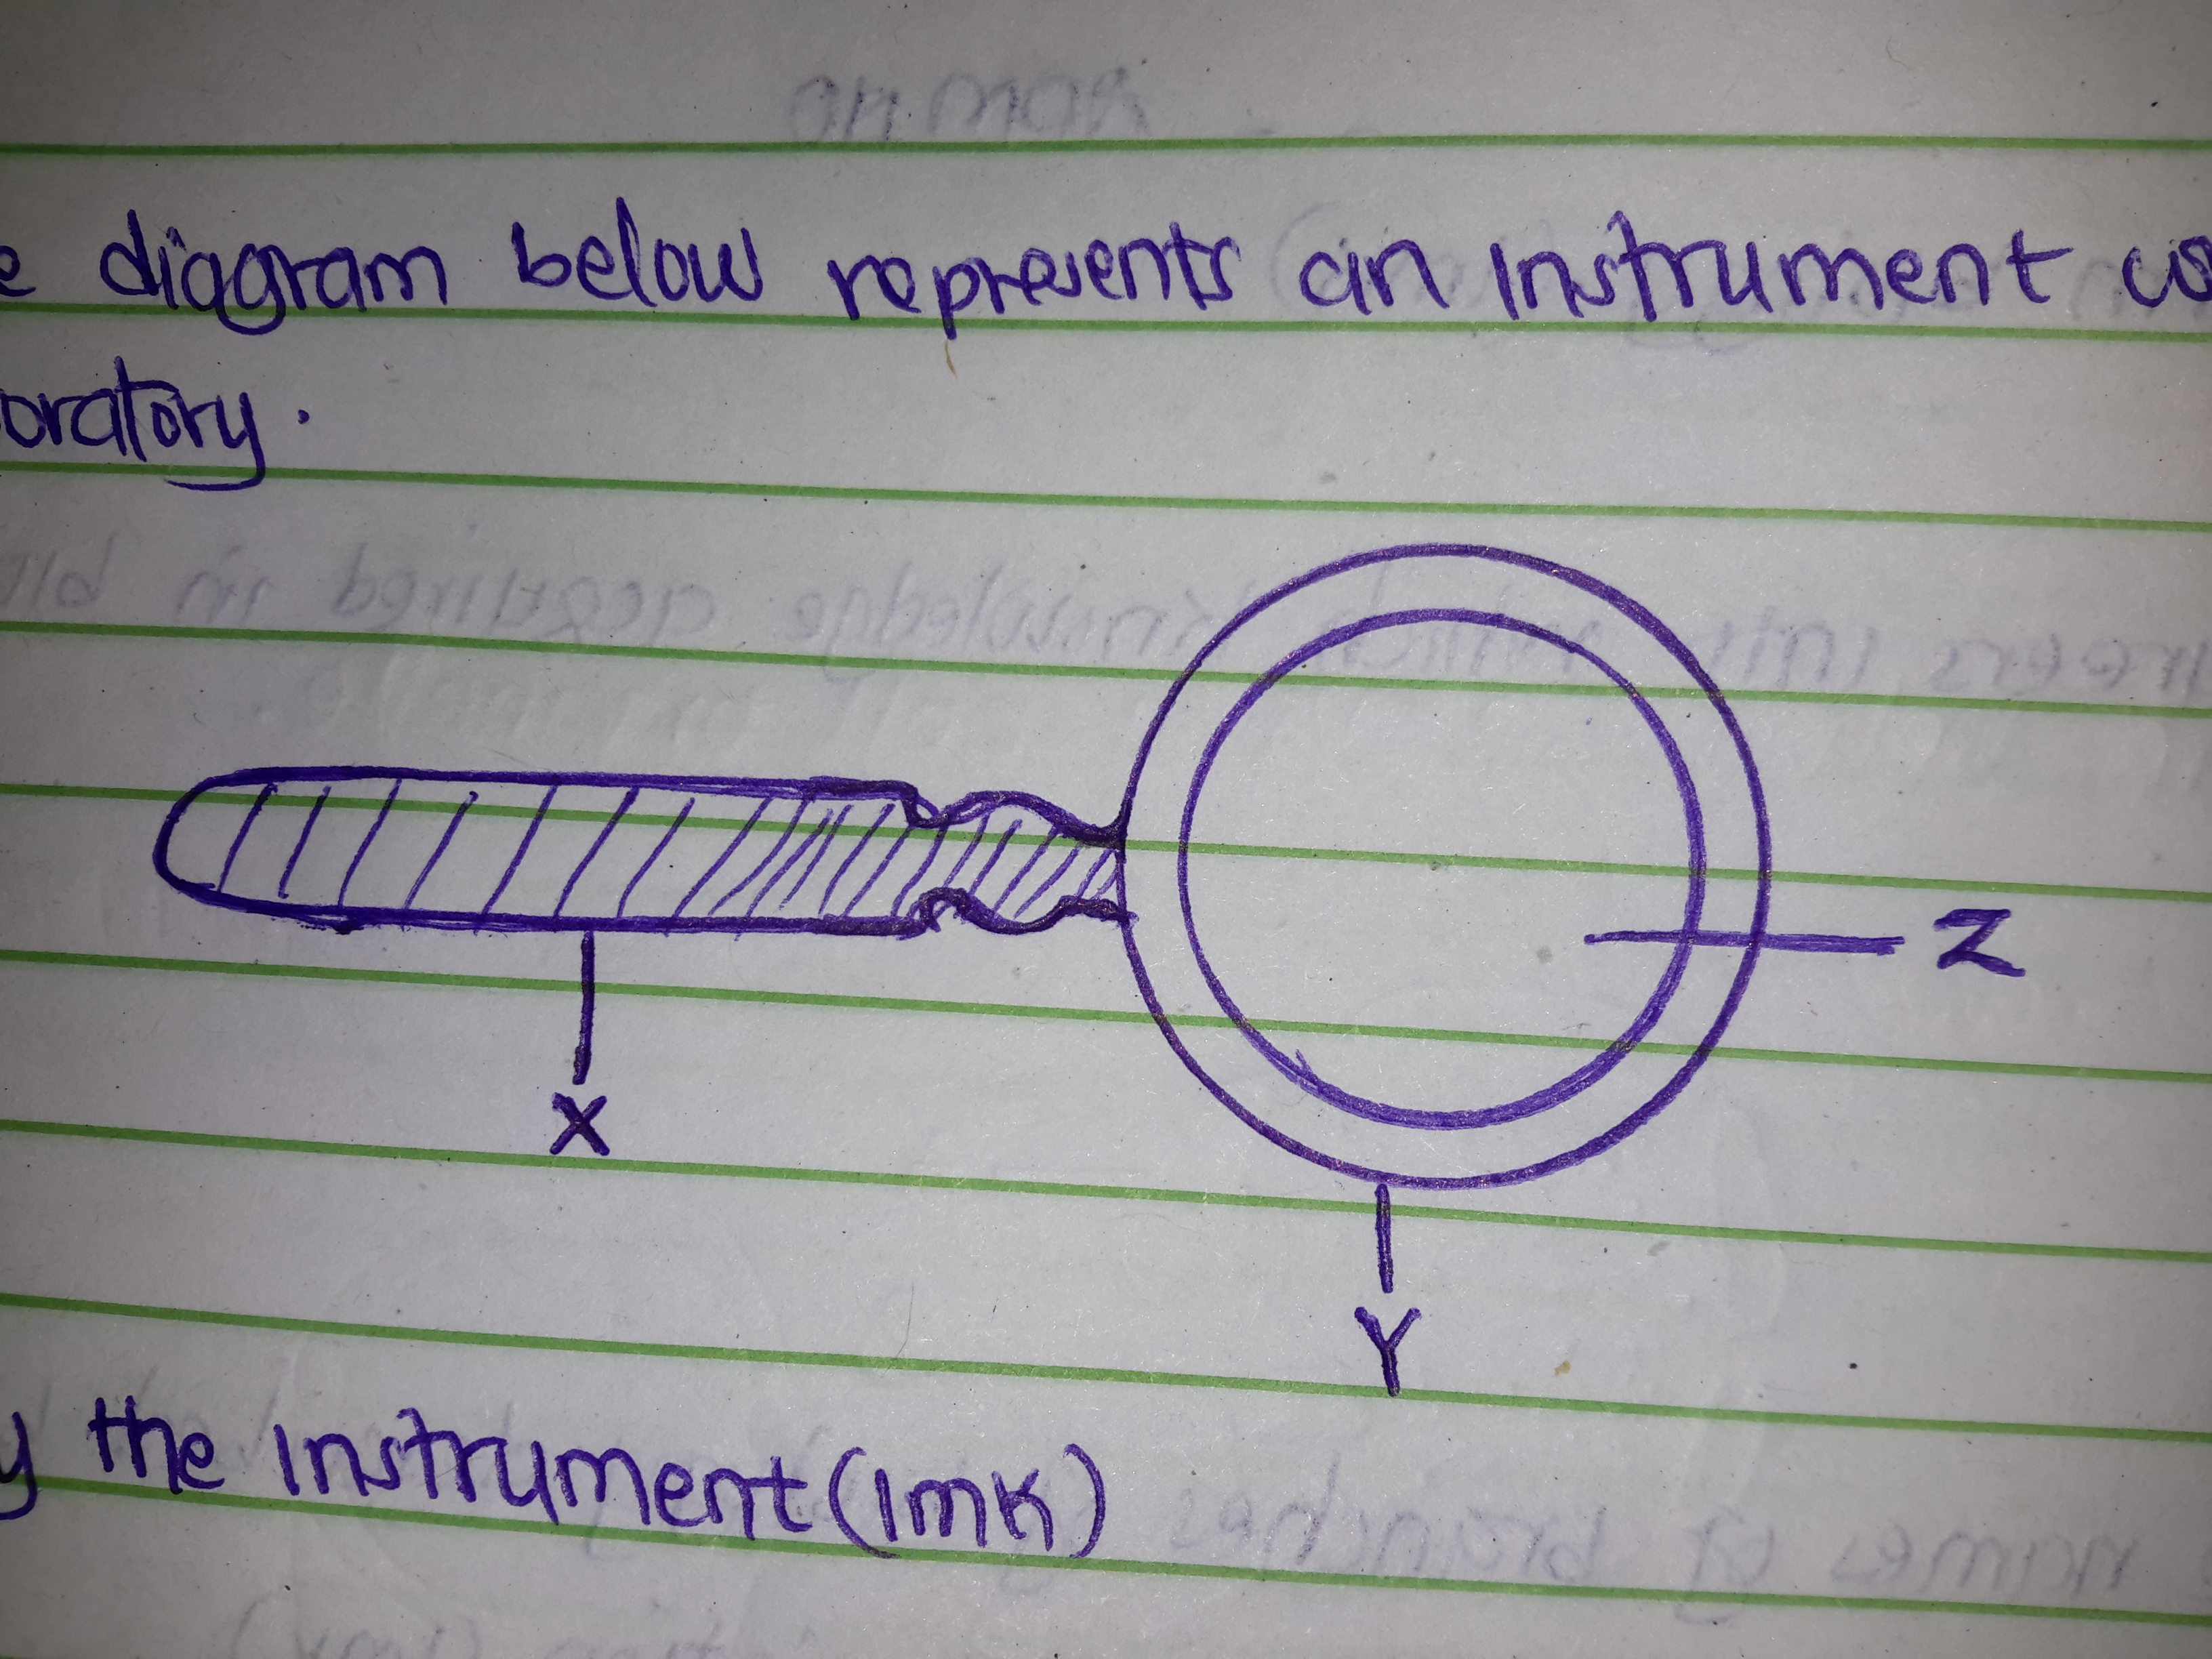 e diagram below represents an instrument us
oratory.
Z
X
Y
y the instrument (1mk)